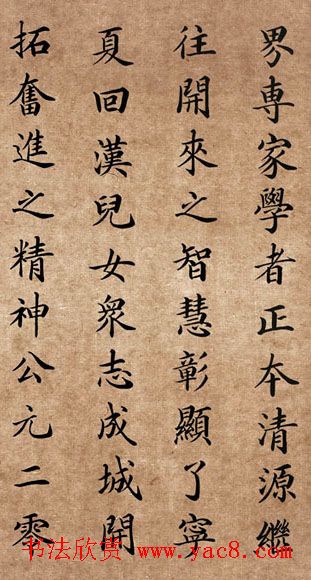 界専家學者正本清源繼
往開來之智慧彰顯了寧
夏回漢兒女衆志成城開
拓奮進之精神公元二零
书法欣赏 www.yac8.com